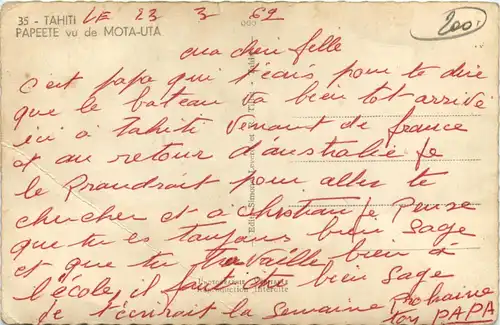 35 - TAHITI
PAPEETE vu de MOTA-UTA
LE 23 3 62
200
ma cheri fille
c'est papa qui t'écris pour te dire
que le bateau va bien tot arrivé
ici a tahiti venant de france
et au retour d'australie je
le Prandrait pour aller te
chercher et a christian je Pense
que tu es toujours bien sage
et que tu travaille bien à
l'école, il faut et bien sage
je t'écrirait la semaine Prochaine
ton PAPA